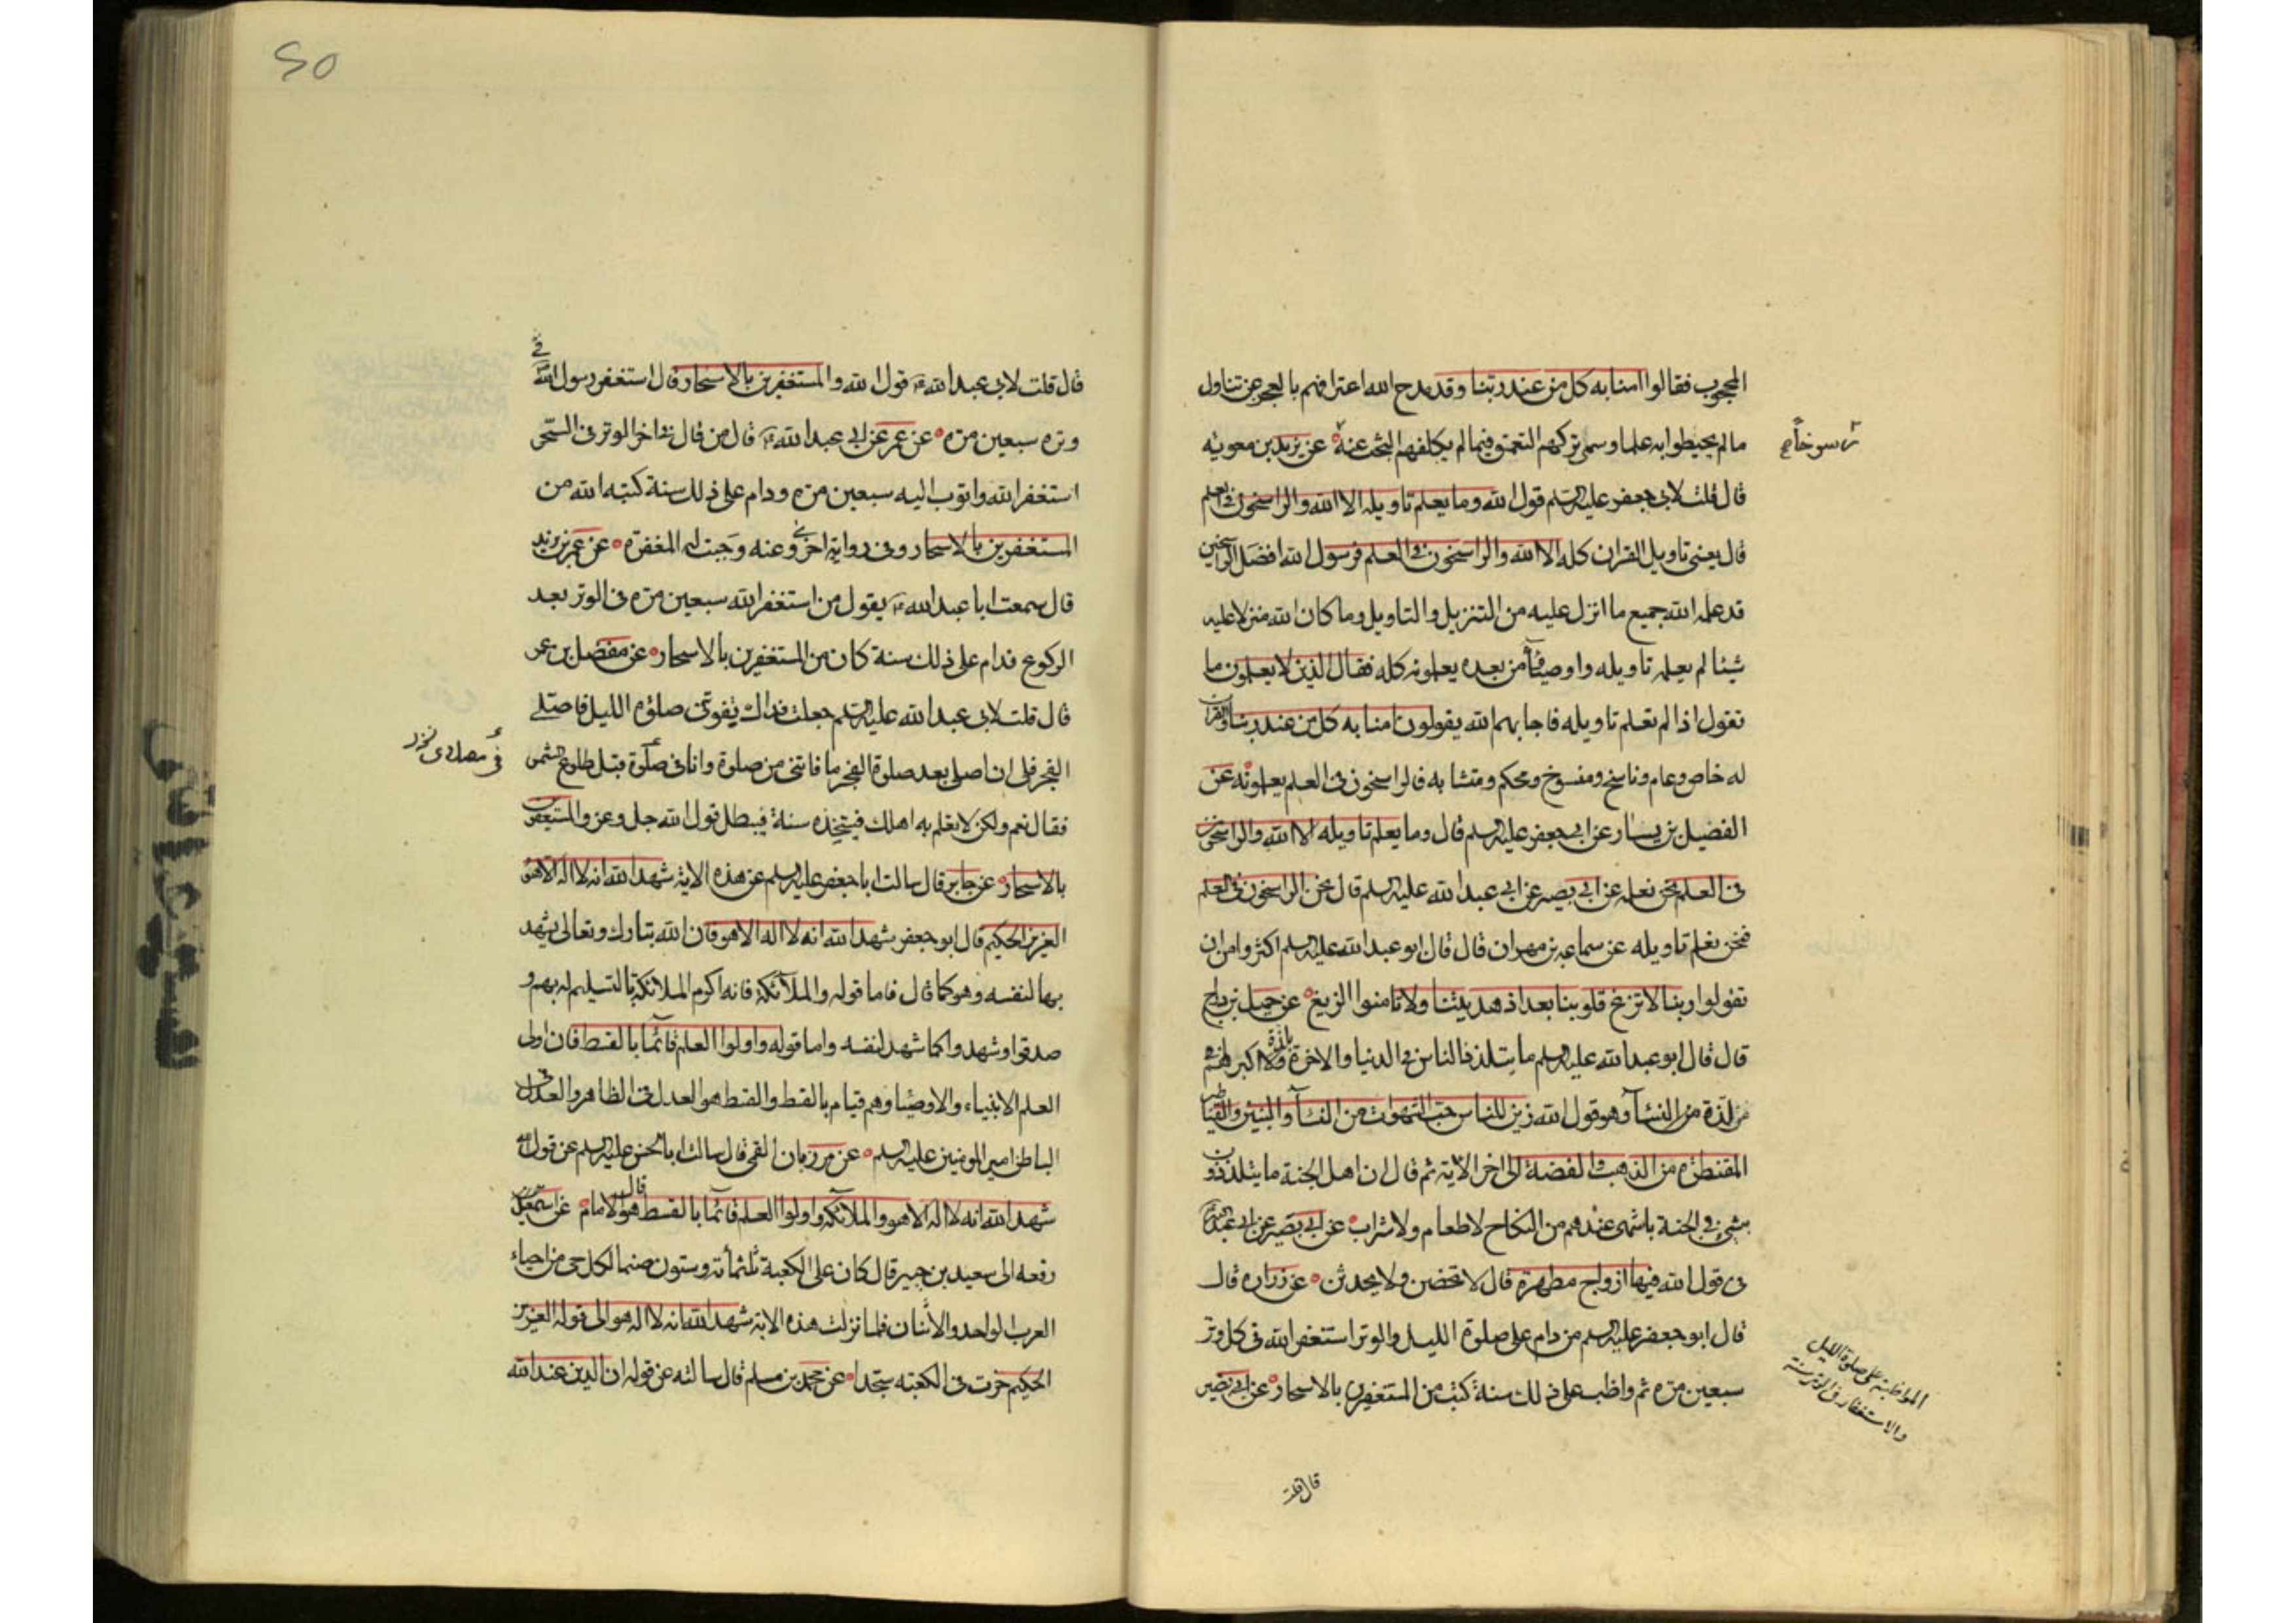 المحجوب فقالوا امنا به كل من عند ربنا وقد مدح الله اعترافهم بالعجز عن تناول
ما لم يحيطوا به علما وسمى تركهم التعمق فيما لم يكلفهم البحث عنه عن يزيد بن معوية
رسوخا
قال قلت لابي جعفر عليه السلم قول الله وما يعلم تاويله الا الله والراسخون في العلم
قال يعني تاويل القران كله الا الله والراسخون في العلم فرسول الله افضل الراسخين
قد علمه الله جميع ما انزل عليه من التنزيل والتاويل وما كان الله منزلا عليه
شيئا لم يعلمه تاويله واوصياؤه من بعده يعلمونه كله فقال الذين لا يعلمون ما
نقول اذا لم نعلم تاويله فاجابهم الله يقولون امنا به كل من عند ربنا والقران
له خاص وعام وناسخ ومنسوخ ومحكم ومتشابه فالراسخون في العلم يعلمونه عن
الفضيل بن يسار عن ابي جعفر عليه السلم قال وما يعلم تاويله الا الله والراسخون
في العلم نحن نعلمه عن ابي بصير عن ابي عبد الله عليه السلم قال نحن الراسخون في العلم
فنحن نعلم تاويله عن سماعه بن مهران قال قال ابو عبد الله عليه السلم اكثروا من ان
تقولوا ربنا لا تزغ قلوبنا بعد اذ هديتنا ولا تامنوا الزيغ عن جميل بن دراج
قال قال ابو عبد الله عليه السلم ما يتلذذ الناس في الدنيا والاخرة بلذة اكبر لهم
من لذة النساء وهو قول الله زين للناس حب الشهوات من النساء والبنين والقناطير
المقنطره من الذهب والفضة الى اخر الاية ثم قال ان اهل الجنة ما يتلذذون
بشئ في الجنة باشهى عندهم من النكاح لا طعام ولا شراب عن ابي بصير عن ابي عبد الله
في قول الله فيها ازواج مطهرة قال لا تحضن ولا يحدثن عن زراره قال
قال ابو جعفر عليه السلم من دام على صلوة الليل والوتر استغفر الله في كل وتر
سبعين مره ثم واظب على ذلك سنة كتب من المستغفرين بالاسحار عن ابي بصير
المواظبة على صلوة الليل
والاستغفار في الوتر سنة
قال قلت
50
قال قلت لابي عبد الله قول الله والمستغفرين بالاسحار قال استغفر رسول الله في
وتره سبعين مره عن عمر عن ابي عبد الله قال من قال في اخر الوتر في السحر
استغفر الله واتوب اليه سبعين مره ودام على ذلك سنة كتبه الله من
المستغفرين بالاسحار وفي رواية اخرى عنه وجبت له المغفره عن عمر بن يزيد
قال سمعت ابا عبد الله يقول من استغفر الله سبعين مره في الوتر بعد
الركوع فدام على ذلك سنة كان من المستغفرين بالاسحار عن مفضل بن عمر
قال قلت لابي عبد الله عليه السلم جعلت فداك يفوتني صلوة الليل فاصلي
الفجر فلي ان اصلي بعد صلوة الفجر ما فاتني من صلوة وانا في صلوة قبل طلوع الشمس
في مصلاي
فقال نعم ولكن لا تعلم به اهلك فيتخذه سنة فيبطل قول الله جل وعز والمستغفرين
بالاسحار عن جابر قال سالت ابا جعفر عليه السلم عن هذه الاية شهد الله انه لا اله الا هو
العزيز الحكيم قال ابو جعفر شهد الله انه لا اله الا هو فان الله تبارك وتعالى يشهد
بها لنفسه وهو كما قال فاما قوله والملائكة فانه اكرم الملائكة بالتسليم لربهم و
صدقوا وشهدوا كما شهد لنفسه واما قوله واولوا العلم قائما بالقسط فان اولي
العلم الانبياء والاوصياء وهم قيام بالقسط والقسط هو العدل في الظاهر والعدل في
الباطن امير المومنين عليه السلم عن مرزبان القمي قال سالت ابا الحسن عليه السلم عن قول الله
شهد الله انه لا اله الا هو والملائكه واولوا العلم قائما بالقسط قال هو الامام عن اسمعيل
رفعه الى سعيد بن جبير قال كان على الكعبة ثلثمائة وستون صنما لكل حي من احياء
العرب الواحد والاثنان فلما نزلت هذه الاية شهد الله انه لا اله هو الى قوله العزيز
الحكيم خرت في الكعبه سجدا عن محمد بن مسلم قال سالته عن قوله ان الدين عند الله